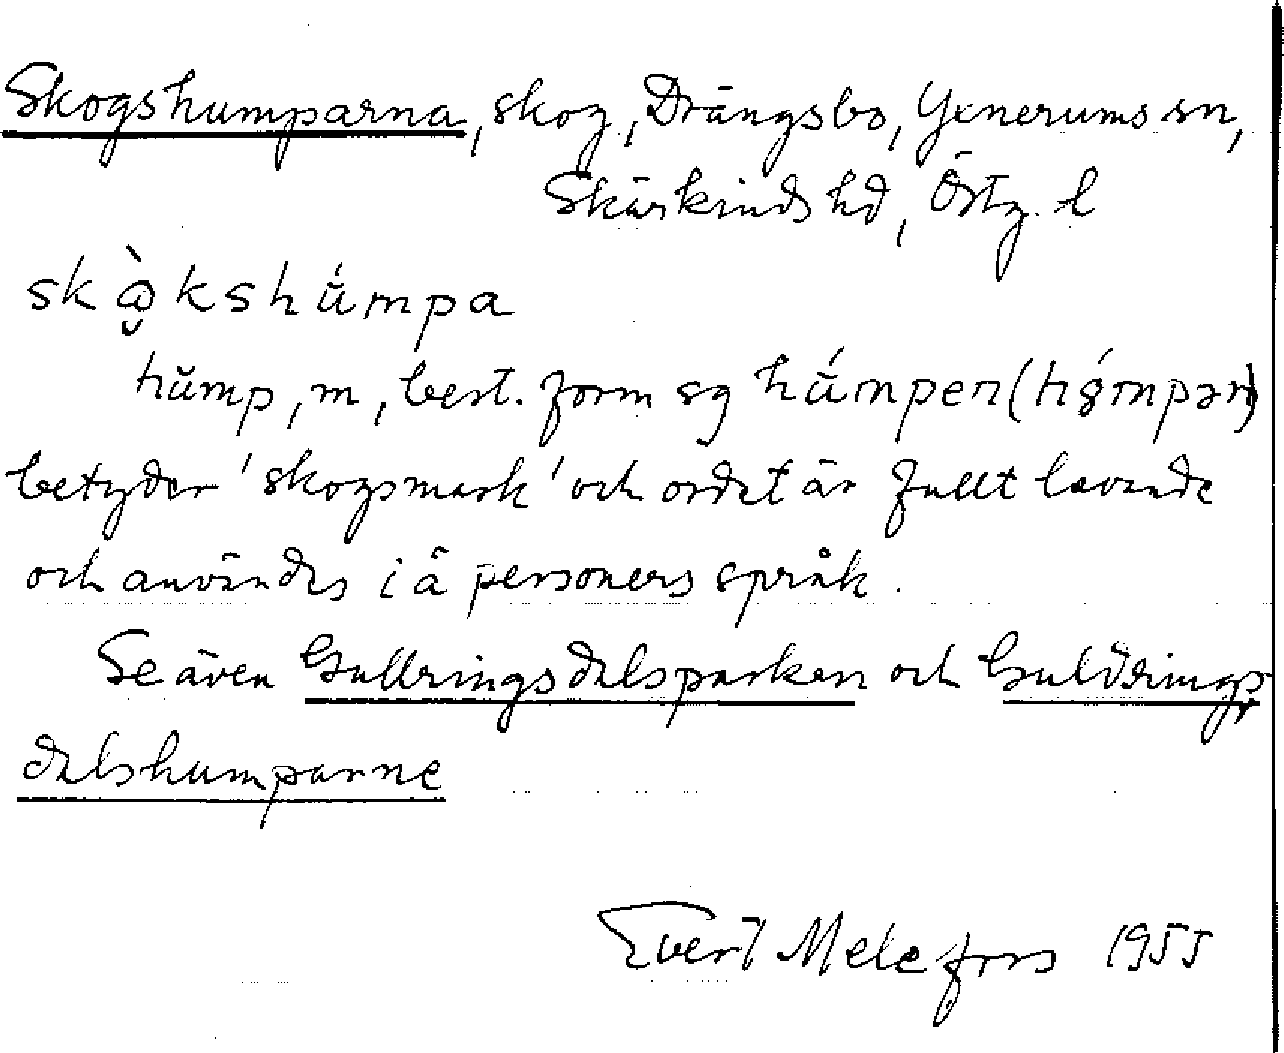 Skogshumparna, skog, Drängsbo, Yxnerums sn,
Skärkinds hd, Östg. l
skò̭kshǔ́mpa
hŭmp, m, best. form sg hǔ́mpen (hǿmpən)
betyder 'skogsmark' och ordet är fullt levande
och användes i ä personers språk.
Se även Gullringsdalsparken och Guldrings-
dalshumparne
Evert Melefors 1955